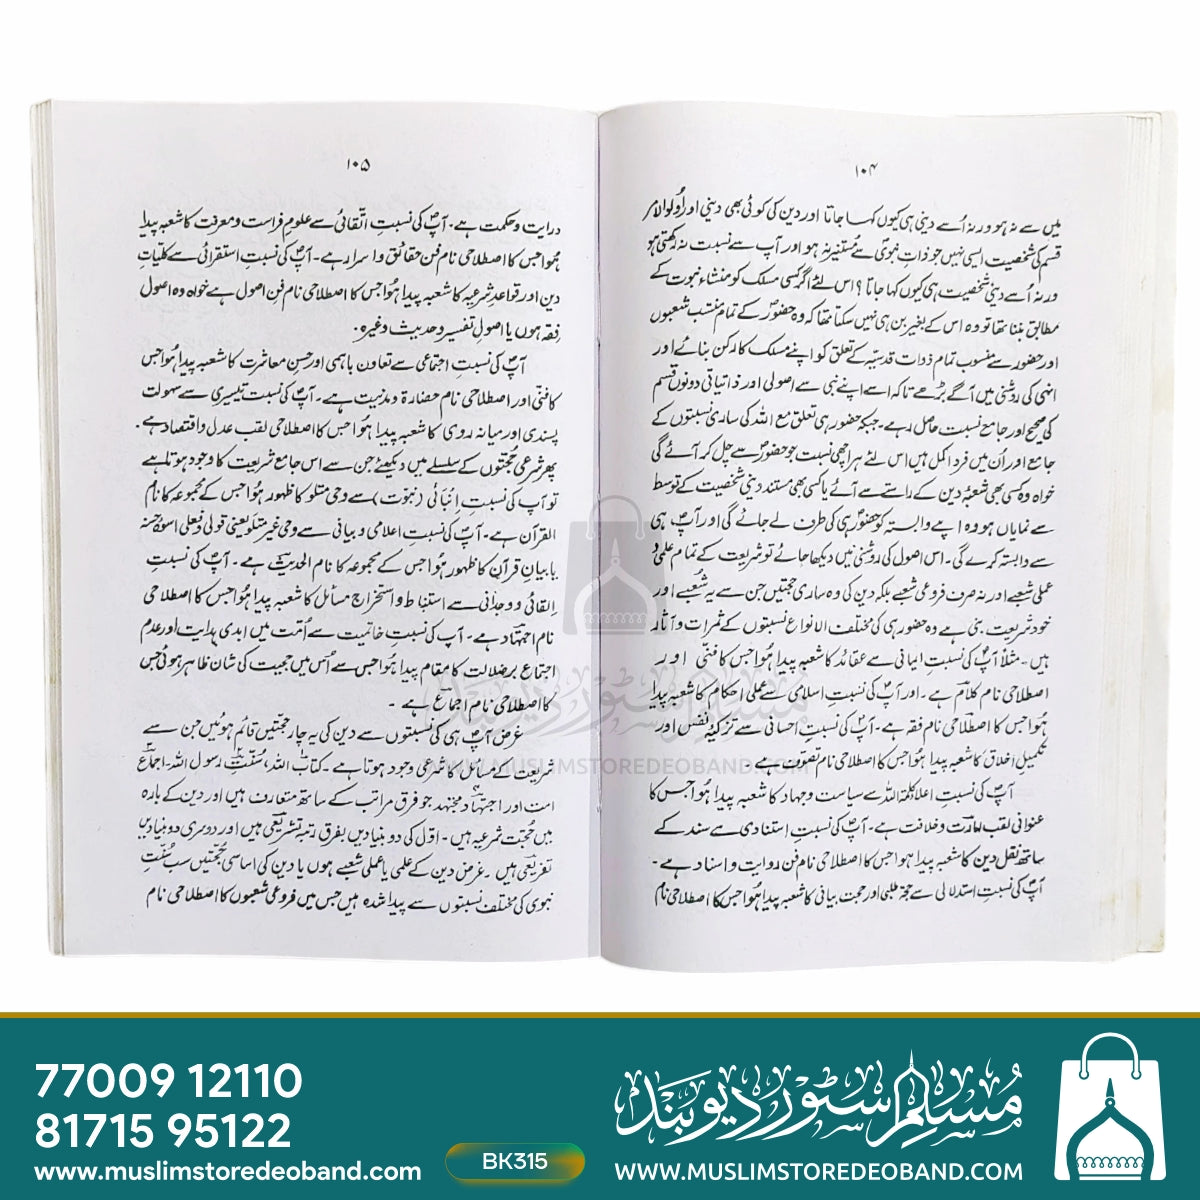 ۱۰۴
میں سے نہ ہو ورنہ اُسے دینی ہی کیوں کہا جاتا اور دین کی کوئی بھی دینی اور اُولوالامر
قسم کی شخصیت ایسی نہیں جو ذاتِ نبوی سے مُستنیر نہ ہو اور آپ سے نسبت نہ رکھتی ہو
ورنہ اُسے دینی شخصیت ہی کیوں کہا جاتا؟ اس لئے اگر کسی مسلک کو منشاء نبوت کے
مطابق بننا تھا تو وہ اس کے بغیر بن ہی نہیں سکتا تھا کہ وہ حضورؐ کے تمام منتسب شعبوں
اور حضورؐ سے منسوب تمام ذوات قدسیہ کے تعلق کو اپنے مسلک کا رکن بنائے اور
انہی کی روشنی میں آگے بڑھے تاکہ اسے اپنے نبی سے اصولی اور ذاتیاتی دونوں قسم
کی صحیح اور جامع نسبت حاصل رہے۔ جبکہ حضورؐ ہی تعلق مع اللہ کی ساری نسبتوں کے
جامع اور اُن میں فرد اکمل ہیں اس لئے ہر اچھی نسبت جو حضورؐ سے چل کر آئے گی
خواہ وہ کسی بھی شعبۂ دین کے راستے سے آئے یا کسی بھی مستند دینی شخصیت کے توسط
سے نمایاں ہو وہ اپنے وابستہ کو حضورؐ ہی کی طرف لے جائے گی اور آپؐ ہی
سے وابستہ کرے گی۔ اس اصول کی روشنی میں دیکھا جائے تو شریعت کے تمام علمی و
عملی شعبے اور نہ صرف فروعی شعبے بلکہ دین کی وہ ساری حجتیں جن سے یہ شُعبے اور
خود شریعت بنی ہے وہ حضورؐ ہی کی مختلف الانواع نسبتوں کے ثمرات و آثار
ہیں۔ مثلاً آپؐ کی نسبتِ ایمانی سے عقائد کا شعبہ پیدا ہُوا جس کا فنّی اور
اصطلاحی نام کلام ہے۔ اور آپؐ کی نسبتِ اسلامی سے عملی احکام کا شعبہ پیدا
ہُوا جس کا اصطلاحی نام فقہ ہے۔ آپؐ کی نسبتِ احسانی سے تزکیۂ نفس اور
تکمیلِ اخلاق کا شعبہ پیدا ہُوا جس کا اصطلاحی نام تصوّف ہے۔
آپؐ کی نسبتِ اعلاءِ کلمۃ اللہ سے سیاست و جہاد کا شعبہ پیدا ہُوا جس کا
عنوانی لقب امارت و خلافت ہے۔ آپؐ کی نسبتِ اِستنادی سے سند کے
ساتھ نقلِ دین کا شعبہ پیدا ہوا جس کا اصطلاحی نام فنِ روایت و اسناد ہے۔
آپؐ کی نسبتِ استدلالی سے حجۃ طلبی اور حجت بیانی کا شعبہ پیدا ہُوا جس کا اصطلاحی نام
۱۰۵
درایت و حکمت ہے۔ آپؐ کی نسبتِ اتقائی سے علومِ فراست و معرفت کا شعبہ پیدا
ہُوا جس کا اصطلاحی نام فن حقائق و اسرار ہے۔ آپؐ کی نسبتِ استقرائی سے کلیاتِ
دین اور قواعدِ شرعیہ کا شعبہ پیدا ہُوا جس کا اصطلاحی نام فنِ اصول ہے خواہ وہ اصول
فقہ ہوں یا اصولِ تفسیر و حدیث وغیرہ۔
آپؐ کی نسبتِ اجتماعی سے تعاونِ باہمی اور حسنِ معاشرت کا شعبہ پیدا ہُوا جس
کا فنّی اور اصطلاحی نام حضارۃ و مدنیت ہے۔ آپؐ کی نسبت تیسیری سے سہولت
پسندی اور میانہ روی کا شعبہ پیدا ہُوا جس کا اصطلاحی لقب عدل و اقتصاد ہے۔
پھر شرعی حُجتوں کے سلسلے میں دیکھئے جن سے اس جامع شریعت کا وجود ہوتا ہے
تو آپؐ کی نسبتِ اِنبائی (نبوّت) سے وحی متلو کا ظہور ہُوا جس کے مجموعہ کا نام
القرآن ہے۔ آپؐ کی نسبتِ اعلامی و بیانی سے وحی غیر متلو یعنی قولی و فعلی اسوۂ حسنہ
یا بیانِ قرآن کا ظہور ہُوا جس کے مجموعہ کا نام الحدیث ہے۔ آپؐ کی نسبتِ
اِلقائی و وجدانی سے استنباط و استخراجِ مسائل کا شعبہ پیدا ہُوا جس کا اصطلاحی
نام اجتہاد ہے۔ آپ کی نسبتِ خاتمیت سے اُمت میں ابدی ہدایت اور عدم
اجتماع بر ضلالت کا مقام پیدا ہُوا جس سے اُس میں حجیت کی شان ظاہر ہوئی جس
کا اصطلاحی نام اجماع ہے۔
غرض آپؐ ہی کی نسبتوں سے دین کی یہ چار حجتیں قائم ہوئیں جن سے
شریعت کے مسائل کا شرعی وجود ہوتا ہے۔ کتاب اللہ، سُنّتِ رسول اللہ، اجماعِ
امت اور اجتہادِ مجتہد جو فرقِ مراتب کے ساتھ متعارف ہیں اور دین کے بارہ
میں حُجتِ شرعیہ ہیں۔ اوّل کی دو بنیادیں بفرقِ رتبہ تشریعی ہیں اور دوسری دو بنیادیں
تفریعی ہیں۔ غرض دین کے علمی یا عملی شعبے ہوں یا دین کی اساسی حُجتیں سب نسبتِ
نبوی کی مختلف نسبتوں سے پیدا شدہ ہیں جس میں فروعی شعبوں کا اصطلاحی نام
مسلم سٹور دیوبند
WWW.MUSLIMSTOREDEOBAND.COM
77009 12110
81715 95122
www.muslimstoredeoband.com
BK315
مُسلم سٹور دیوبند
WWW.MUSLIMSTOREDEOBAND.COM